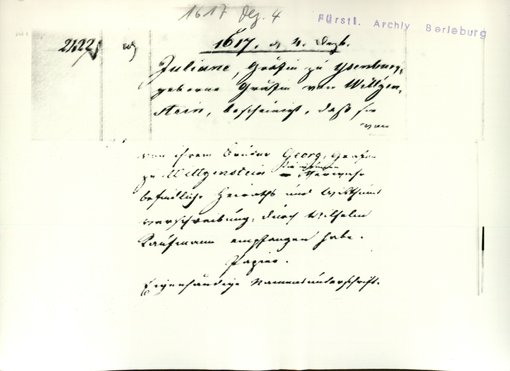 1617 Dez. 4
Fürstl. Archiv Berleburg
2122
1617. d. 4. Dezb.
Juliane, Gräfin zu Ysenburg,
geborne Gräfin von Wittgen-
stein, bescheinigt, daß sie
von
von ihrem Bruder Georg, Grafen
zu Wittgenstein in
befindliche Heiraths und Witthums
verschreibung, durch Wilhelm
Kaufmann empfangen habe.
Papier.
Eigenhändige Namensunterschrift.